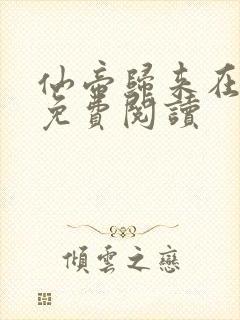 仙帝歸來在
免費閱讀
傾雲之戀